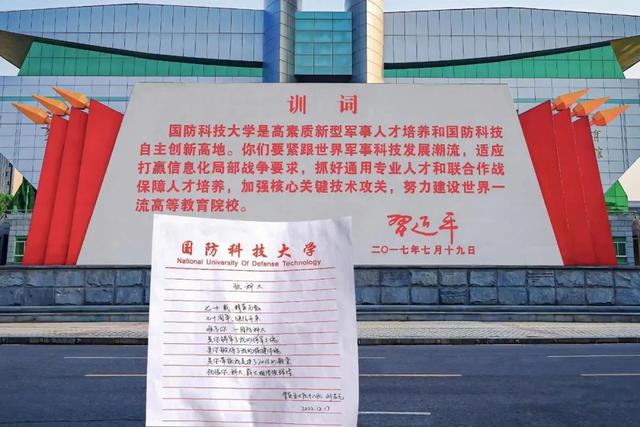 训词
国防科技大学是高素质新型军事人才培养和国防科技
自主创新高地。你们要紧跟世界军事科技发展潮流，适应
打赢信息化局部战争要求，抓好通用专业人才和联合作战
保障人才培养，加强核心关键技术攻关，努力建设世界一
流高等教育院校。
习近平
二〇一七年七月十九日
国防科技大学
National University Of Defense Technology
致科大
七十载
七十周年
国防科大
2022.12.17